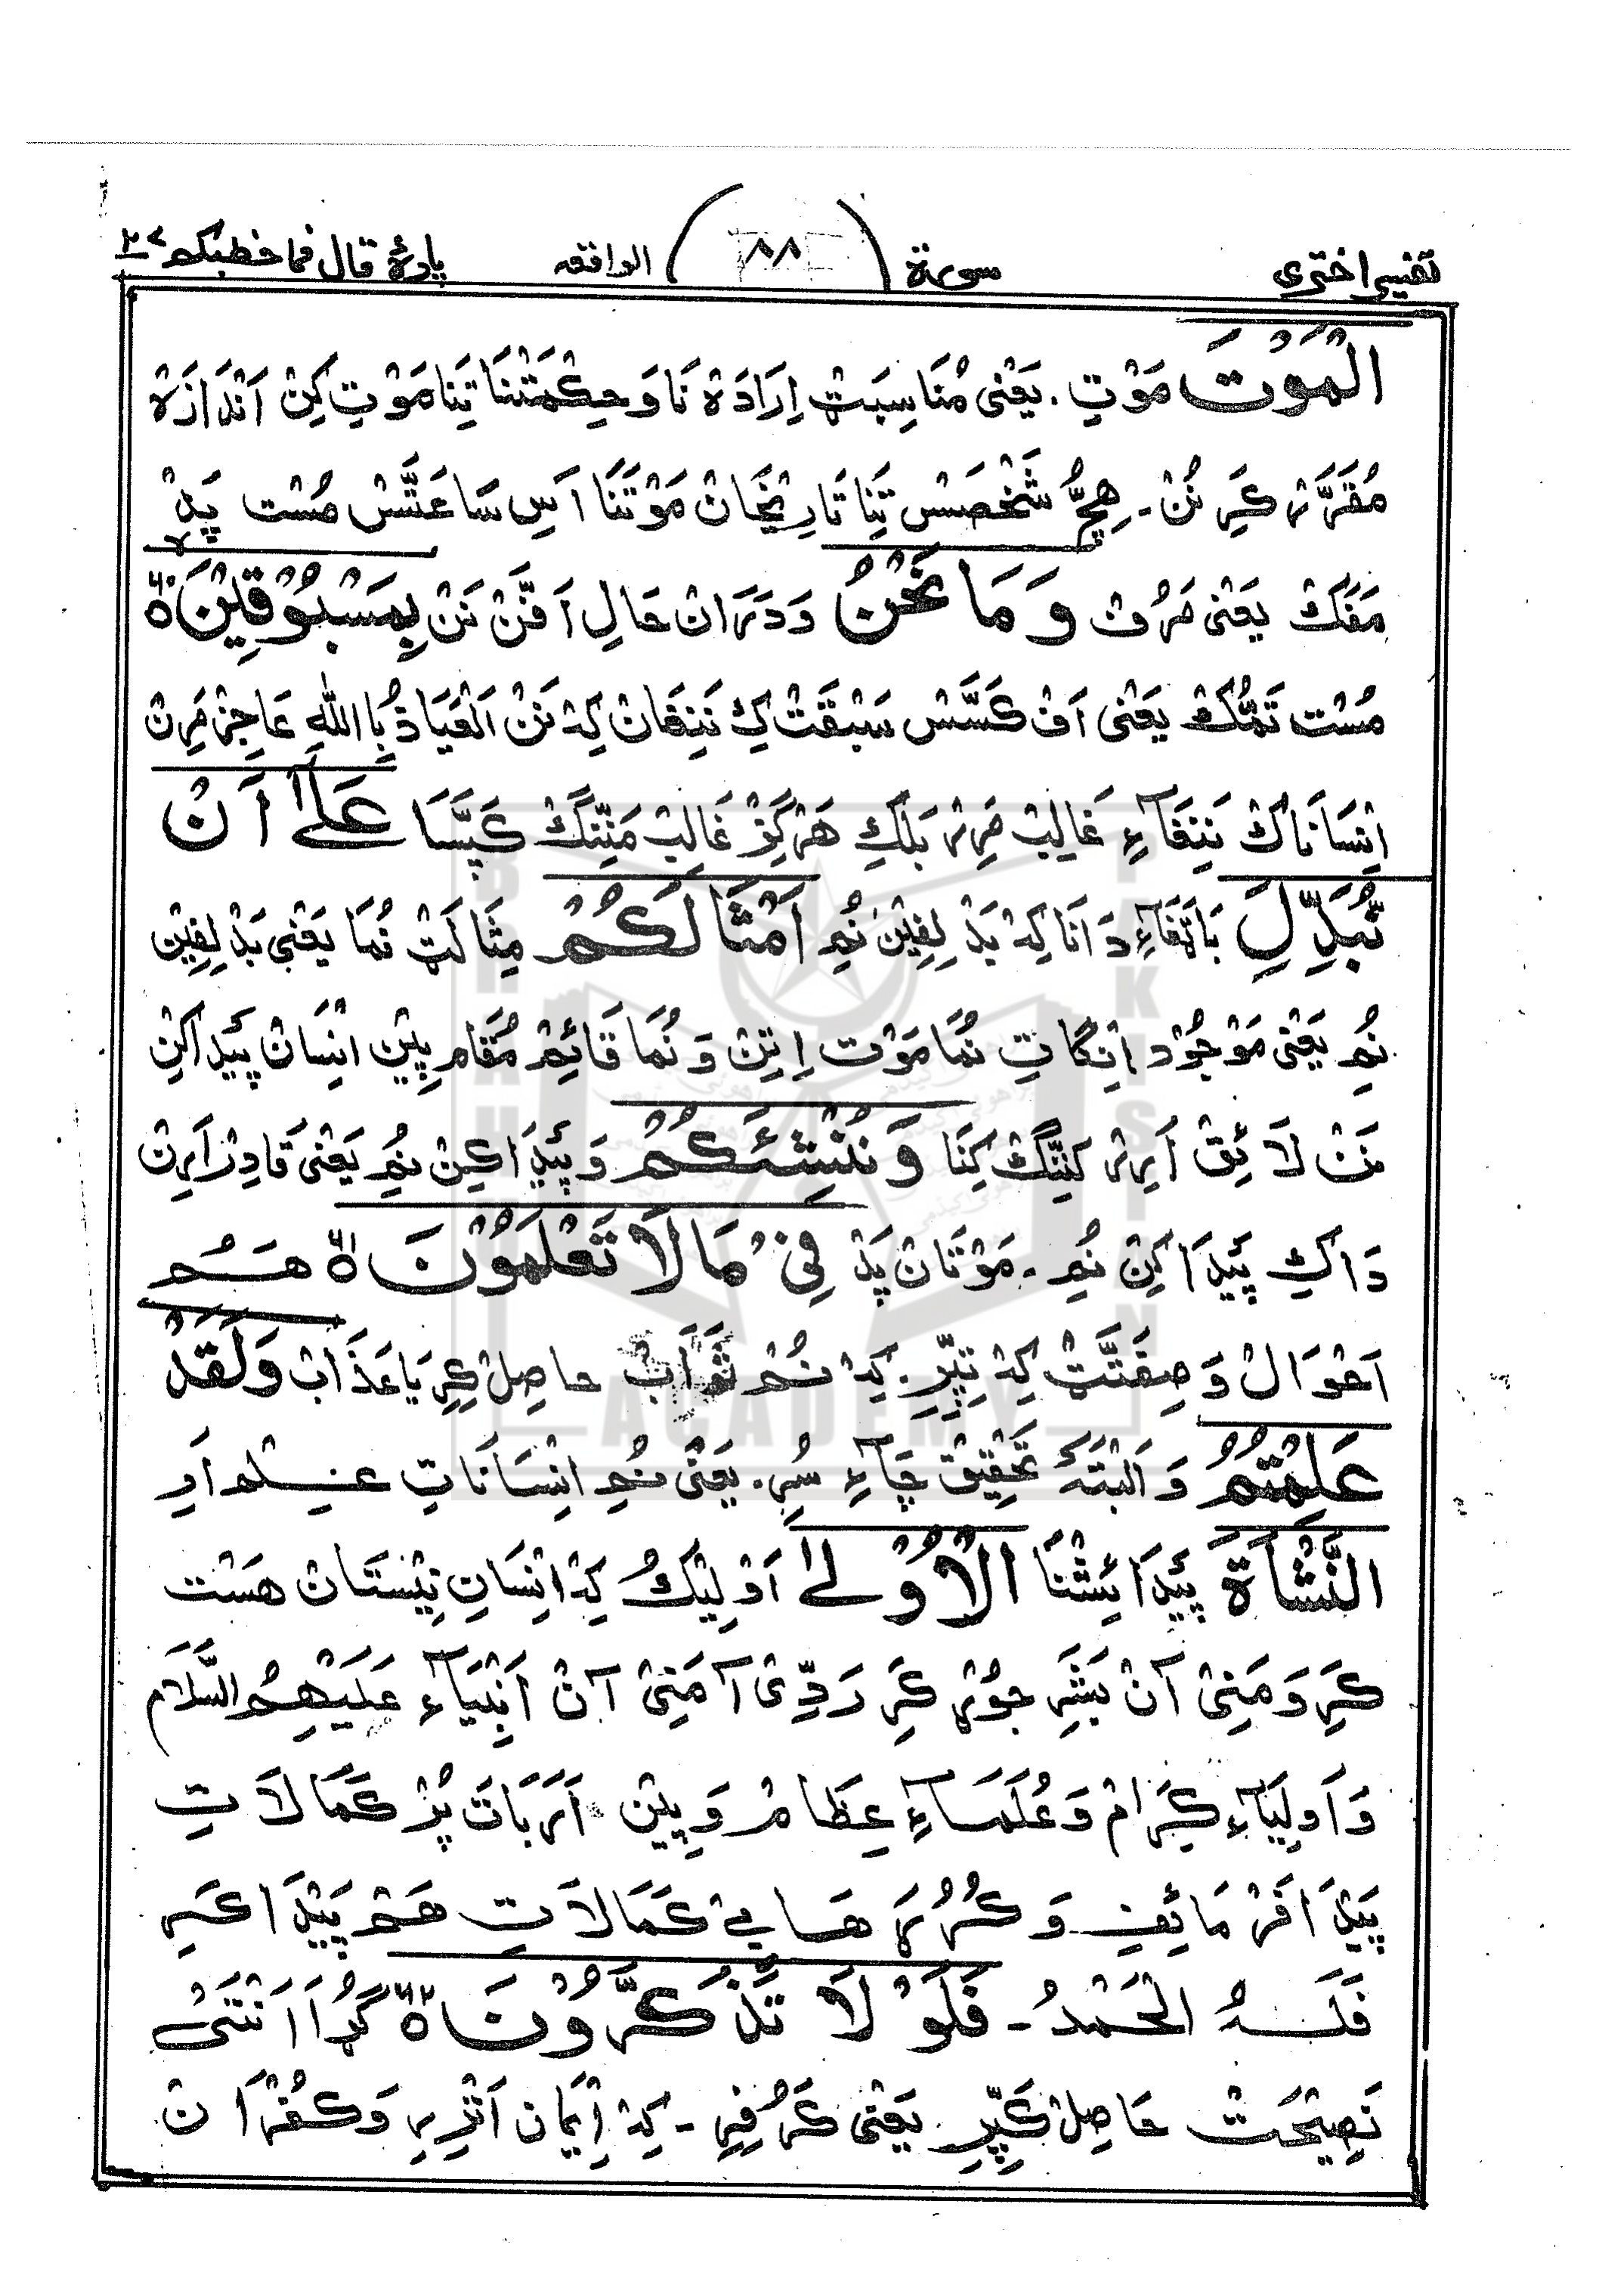 تفسیر اختری سورة (٨٨) الواقعه پارۂ قال فما خطبکم ٢٧
الْمَوْتَ مَوْتِ . یَعْنِیْ مُنَاسِبَتْ اِرَادَہْ نَا وَ حِکْمَتْنَا تِنَا مَوْتِ کِنْ اَنْدَازَہْ
مُقَرَّرْ کَرِ نُنْ - هِچُّ شَخْصَسْ تِنَا تَارِیْخَانْ مَوْتَنَا اَسِ سَاعَتَّسْ مُسْت پَدْ
مَفَکْ یَعْنِیْ مَرُفْ وَ مَا نَحْنُ وَ دَرَانْ حَالِ اَفَّنْ نَنْ بِمَسْبُوْقِیْنَ ٥ ٦٠
مُسْت تَمُّکْ یَعْنِیْ اَفْ کَسَّسْ سَبْقَتْ کِ نَنِغَانْ کِہْ نَنْ اَلْعَیَاذُ بِاللّٰهِ عَاجِزْ مَرِنْ
اِنْسَانَاکْ نَنِغَآءِ غَالِبْ مَرِرْ بَلْکِ هَرْگِزْ غَالِبْ مَنِّنْگْ کَپَّسَا عَلٰۤی اَنْ
نُّبَدِّلَ بَاتِغَآءِ دَانَا کِہْ بَدْ لِفِیْنْ نُمِ اَمْثَالَکُمْ مِثَالَتْ نُمَا یَعْنِی بَدْ لِفِیْن
نُمِ یَعْنِیْ مَوْجُوْد اِنْگَاتِ نُمَا مَوْت اِتِنْ وَ نُمَا قَائِمْ مُقَام پِیْن اِنْسَانْ پَیْدَا کِنْ
نَنْ لَائِقْ اَرِرْ کَنِّنْگْ کِنَا وَ نُنْشِئَکُمْ وَ پَیْدَا کِنْ نُمِ یَعْنِیْ قَادِرْ اَرِنْ
دَاکِ پَیْدَا کِنْ نُمِ - مَوْتَانْ پَدْ فِیْ مَا لَا تَعْلَمُوْنَ ٥ ٦١ هَمُ
اَحْوَالْ وَ صِفَتَّتْ کِہْ تِپَّرِ . کِہْ نُمْ ثَوَابْ حَاصِلْ کِرِ یَا عَذَابْ وَ لَقَدْ
عَلِمْتُمُ وَ اَلْبَتَّہْ تَحْقِیْقْ چَآءِ سُرِ . یَعْنِیْ نُمِ اِنْسَانَاتِ عِلْم اَرِ
النَّشْاَةَ پَیْدَائِشْنَا الْاُوْلٰی اَوْلِیْکُ کِہْ اِنْسَانِ نِیْسَتَانْ هَسْت
کَرِ وَ مَنِیْ آنْ بَشَرِ جُوْر کَرِ رَدِّیْ آ مَنِیْ آنْ اَنْبِیَآءِ عَلَیْهِمُ السَّلَام
وَ اَوْلِیَآءِ کِرَامْ وَ عُلَمَآءِ عِظَامْ وَ پِیْن اَرْبَابَ پُرْ کَمَالَاتِ
پَیْدَا فَرْمَائِفِ وَ کُرُرَهَا فِیْ کَمَالَاتِ هَمْ پَیْدَا کَرِ
فَلَہُ الْحَمْدُ - فَلَوْ لَا تَذَکَّرُوْنَ ٥ ٦٢ گُڑَا اَنْتَئیْ
نَصِیْحَتْ حَاصِلْ کَپِّرِ یَعْنِیْ کَرُفِرِ - کِہْ اِیْمَان اَتْرِرِ وَ کُفْرَانْ